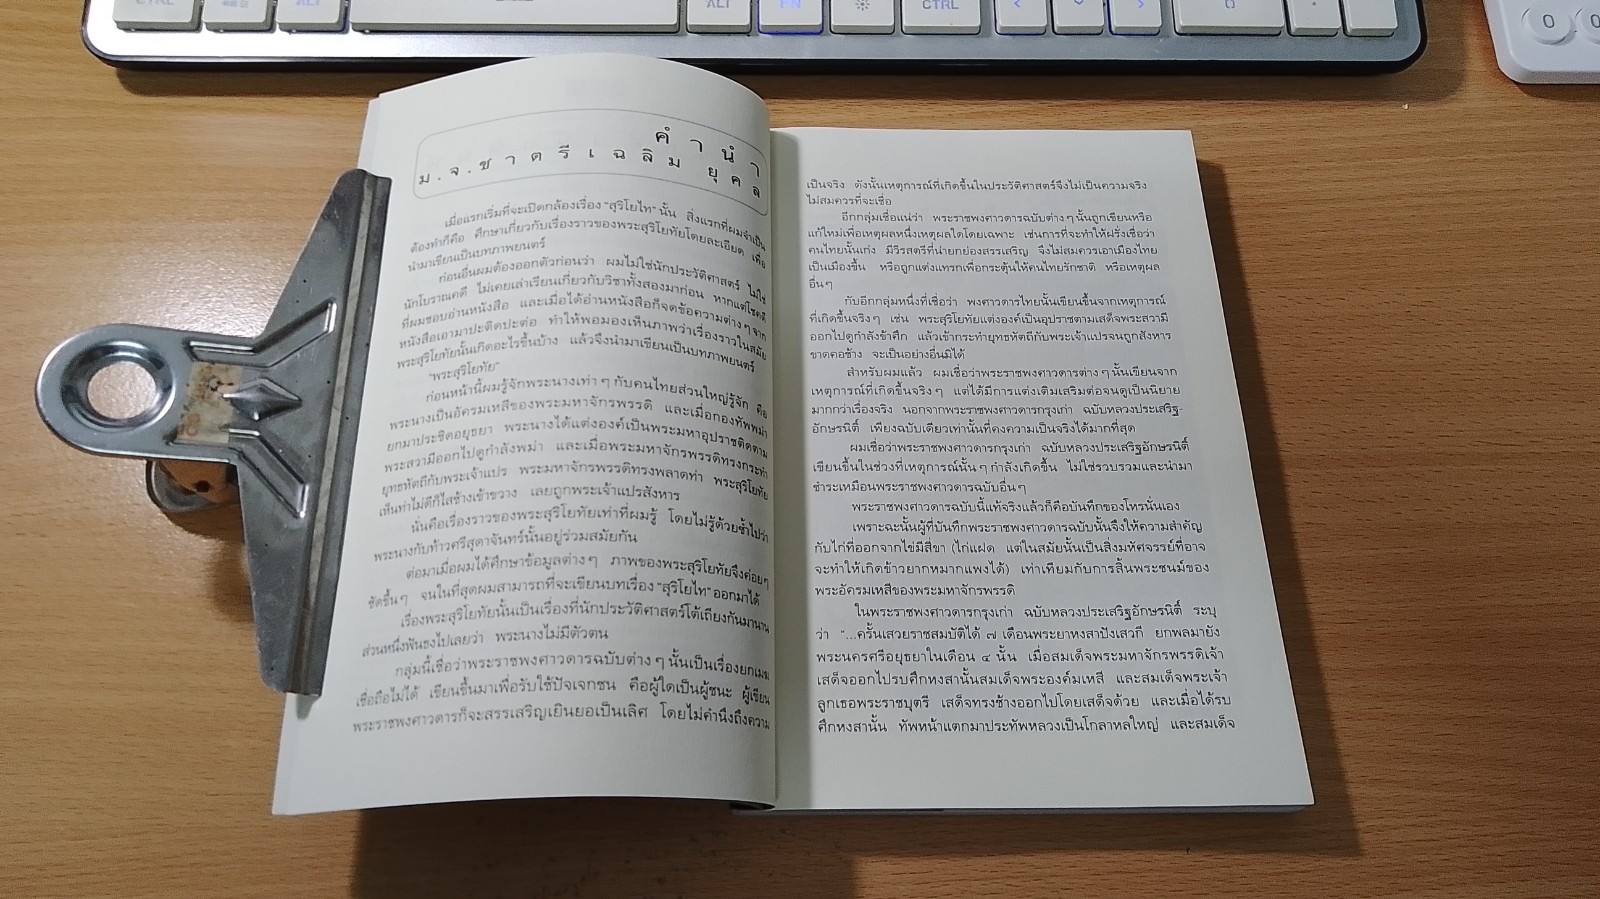 CTRL
ALT
ALT
FN
CTRL
0
.
0
คำนำ
ม.จ.ชาตรีเฉลิม ยุคล
เมื่อแรกเริ่มที่จะเปิดกล้องเรื่อง “สุริโยไท” นั้น สิ่งแรกที่ผมจำเป็น
ต้องทำก็คือ ศึกษาเกี่ยวกับเรื่องราวของพระสุริโยทัยโดยละเอียด เพื่อ
นำมาเขียนเป็นบทภาพยนตร์
ก่อนอื่นผมต้องออกตัวก่อนว่า ผมไม่ใช่นักประวัติศาสตร์ ไม่ใช่
นักโบราณคดี ไม่เคยเล่าเรียนเกี่ยวกับวิชาทั้งสองมาก่อน หากแต่โชคดี
ที่ผมชอบอ่านหนังสือ และเมื่อได้อ่านหนังสือก็จดข้อความต่างๆ จาก
หนังสือเอามาปะติดปะต่อ ทำให้พอมองเห็นภาพว่าเรื่องราวในสมัย
พระสุริโยทัยนั้นเกิดอะไรขึ้นบ้าง แล้วจึงนำมาเขียนเป็นบทภาพยนตร์
“พระสุริโยทัย”
ก่อนหน้านี้ผมรู้จักพระนางเท่าๆ กับคนไทยส่วนใหญ่รู้จัก คือ
พระนางเป็นอัครมเหสีของพระมหาจักรพรรดิ และเมื่อกองทัพพม่า
ยกมาประชิดอยุธยา พระนางได้แต่งองค์เป็นพระมหาอุปราชติดตาม
พระสวามีออกไปดูกำลังพม่า และเมื่อพระมหาจักรพรรดิทรงกระทำ
ยุทธหัตถีกับพระเจ้าแปร พระมหาจักรพรรดิทรงพลาดท่า พระสุริโยทัย
เห็นท่าไม่ดีก็ไสช้างเข้าขวาง เลยถูกพระเจ้าแปรสังหาร
นั่นคือเรื่องราวของพระสุริโยทัยเท่าที่ผมรู้ โดยไม่รู้ด้วยซ้ำไปว่า
พระนางกับท้าวศรีสุดาจันทร์นั้นอยู่ร่วมสมัยกัน
ต่อมาเมื่อผมได้ศึกษาข้อมูลต่างๆ ภาพของพระสุริโยทัยจึงค่อยๆ
ชัดขึ้นๆ จนในที่สุดผมสามารถที่จะเขียนบทเรื่อง “สุริโยไท” ออกมาได้
เรื่องพระสุริโยทัยนั้นเป็นเรื่องที่นักประวัติศาสตร์โต้เถียงกันมานาน
ส่วนหนึ่งฟันธงไปเลยว่า พระนางไม่มีตัวตน
กลุ่มนี้เชื่อว่าพระราชพงศาวดารฉบับต่างๆ นั้นเป็นเรื่องยกเมฆ
เชื่อถือไม่ได้ เขียนขึ้นมาเพื่อรับใช้ปัจเจกชน คือผู้ใดเป็นผู้ชนะ ผู้เขียน
พระราชพงศาวดารก็จะสรรเสริญเยินยอเป็นเลิศ โดยไม่คำนึงถึงความ
เป็นจริง ดังนั้นเหตุการณ์ที่เกิดขึ้นในประวัติศาสตร์จึงไม่เป็นความจริง
ไม่สมควรที่จะเชื่อ
อีกกลุ่มเชื่อแน่ว่า พระราชพงศาวดารฉบับต่างๆ นั้นถูกเขียนหรือ
แก้ใหม่เพื่อเหตุผลหนึ่งเหตุผลใดโดยเฉพาะ เช่นการที่จะทำให้ฝรั่งเชื่อว่า
คนไทยนั้นเก่ง มีวีรสตรีที่น่ายกย่องสรรเสริญ จึงไม่สมควรเอาเมืองไทย
เป็นเมืองขึ้น หรือถูกแต่งแทรกเพื่อกระตุ้นให้คนไทยรักชาติ หรือเหตุผล
อื่นๆ
กับอีกกลุ่มหนึ่งที่เชื่อว่า พงศาวดารไทยนั้นเขียนขึ้นจากเหตุการณ์
ที่เกิดขึ้นจริงๆ เช่น พระสุริโยทัยแต่งองค์เป็นอุปราชตามเสด็จพระสวามี
ออกไปดูกำลังข้าศึก แล้วเข้ากระทำยุทธหัตถีกับพระเจ้าแปรจนถูกสังหาร
ขาดคอช้าง จะเป็นอย่างอื่นมิได้
สำหรับผมแล้ว ผมเชื่อว่าพระราชพงศาวดารต่างๆ นั้นเขียนจาก
เหตุการณ์ที่เกิดขึ้นจริงๆ แต่ได้มีการแต่งเติมเสริมต่อจนดูเป็นนิยาย
มากกว่าเรื่องจริง นอกจากพระราชพงศาวดารกรุงเก่า ฉบับหลวงประเสริฐ-
อักษรนิติ์ เพียงฉบับเดียวเท่านั้นที่คงความเป็นจริงได้มากที่สุด
ผมเชื่อว่าพระราชพงศาวดารกรุงเก่า ฉบับหลวงประเสริฐอักษรนิติ์
เขียนขึ้นในช่วงที่เหตุการณ์นั้นๆ กำลังเกิดขึ้น ไม่ใช่รวบรวมและนำมา
ชำระเหมือนพระราชพงศาวดารฉบับอื่นๆ
พระราชพงศาวดารฉบับนี้แท้จริงแล้วก็คือบันทึกของโหรนั่นเอง
เพราะฉะนั้นผู้ที่บันทึกพระราชพงศาวดารฉบับนั้นจึงให้ความสำคัญ
กับไก่ที่ออกจากไข่มีสี่ขา (ไก่แฝด แต่ในสมัยนั้นเป็นสิ่งมหัศจรรย์ที่อาจ
จะทำให้เกิดข้าวยากหมากแพงได้) เท่าเทียมกับการสิ้นพระชนม์ของ
พระอัครมเหสีของพระมหาจักรพรรดิ
ในพระราชพงศาวดารกรุงเก่า ฉบับหลวงประเสริฐอักษรนิติ์ ระบุ
ว่า “...ครั้นเสวยราชสมบัติได้ ๗ เดือนพระยาหงสาปังเสวกี ยกพลมายัง
พระนครศรีอยุธยาในเดือน ๔ นั้น เมื่อสมเด็จพระมหาจักรพรรดิเจ้า
เสด็จออกไปรบศึกหงสานั้นสมเด็จพระองค์มเหสี และสมเด็จพระเจ้า
ลูกเธอพระราชบุตรี เสด็จทรงช้างออกไปโดยเสด็จด้วย และเมื่อได้รบ
ศึกหงสานั้น ทัพหน้าแตกมาประทัพหลวงเป็นโกลาหลใหญ่ และสมเด็จ